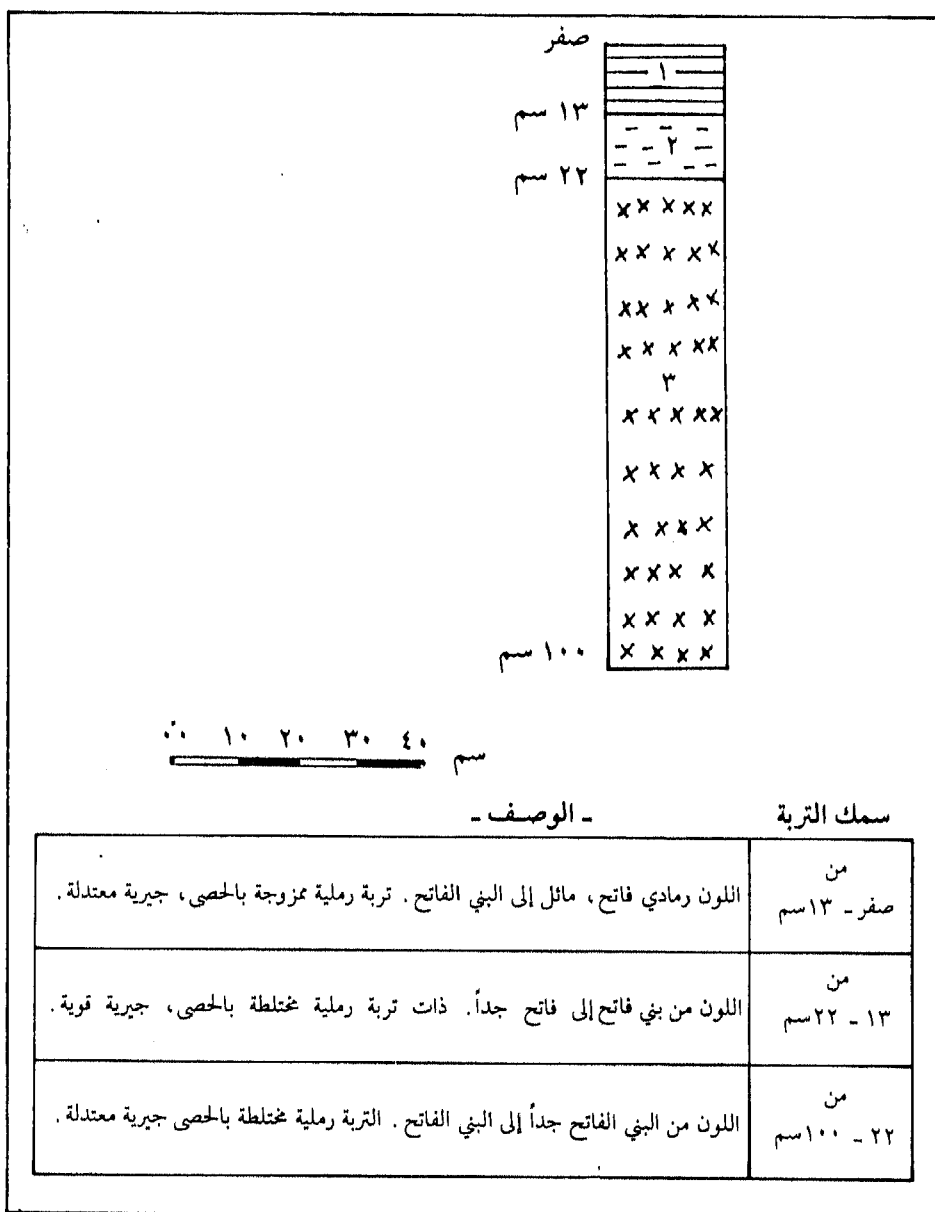 صفر
١
١٣ سم
٢
٢٢ سم
٣
١٠٠ سم
٠٠ ١٠ ٢٠ ٣٠ ٤٠ سم
سمك التربة - الوصف -
من
صفر - ١٣سم
اللون رمادي فاتح، مائل إلى البني الفاتح. تربة رملية ممزوجة بالحصى، جيرية معتدلة.
من
١٣ - ٢٢سم
اللون من بني فاتح إلى فاتح جداً. ذات تربة رملية مختلطة بالحصى، جيرية قوية.
من
٢٢ - ١٠٠سم
اللون من البني الفاتح جداً إلى البني الفاتح. التربة رملية مختلطة بالحصى جيرية معتدلة.